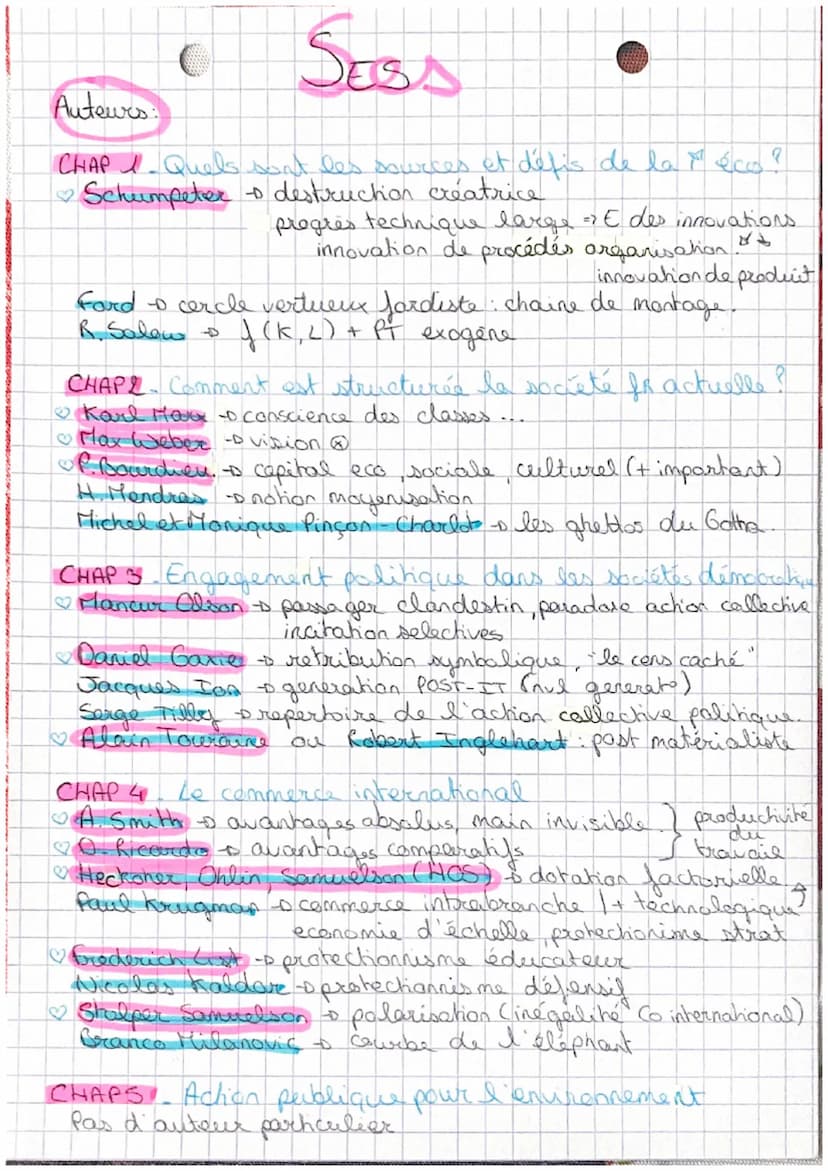 SES
Auteurs:
CHAP 1 - Quels sont les sources et défis de la éco ?
♡ Schumpeter → destruction créatrice
progrès technique large => E des innovations
innovation de procédés organisation.
innovation de produit
Ford → cercle vertueux fordiste : chaine de montage.
R. Solow → f(K, L) + PT exogène
CHAP 2 - Comment est structurée la société FR actuelle ?
♡ Karl Marx → conscience des classes ...
♡ Max Weber → vision
♡ P. Bourdieu → capital eco, sociale, culturel (+ important)
H. Mendras → notion moyenisation
Michel et Monique Pinçon-Charlot → les ghettos du Gotha.
CHAP 3 - Engagement politique dans les sociétés démocratique
♡ Mancur Olson → passager clandestin, paradoxe action collective
incitation selectives
♡ Daniel Gaxie → retribution symbolique, "le cens caché"
Jacques Ion → generation POST-IT
Serge Tilly → repertoire de l'action collective politique.
♡ Alain Touraine ou Robert Inglehart : post matérialiste
CHAP 4 - Le commerce international
♡ A. Smith → avantages absolus, main invisible. } productivité
♡ D. Ricardo → avantages comparatifs du travail
♡ Heckcher, Ohlin, Samuelson (HOS) → dotation factorielle
Paul Krugman → commerce intrabranche / + technologique
economie d'échelle, protectionime strat
♡ Frederich List → protectionnisme éducateur
Nicolas Kaldor → protectionnisme défensif
♡ Stolper Samuelson → polarisation (inégalité Co international)
Branco Milanovic → courbe de l'éléphant
CHAP 5 - Action publique pour l'environnement
Pas d'auteur particulier